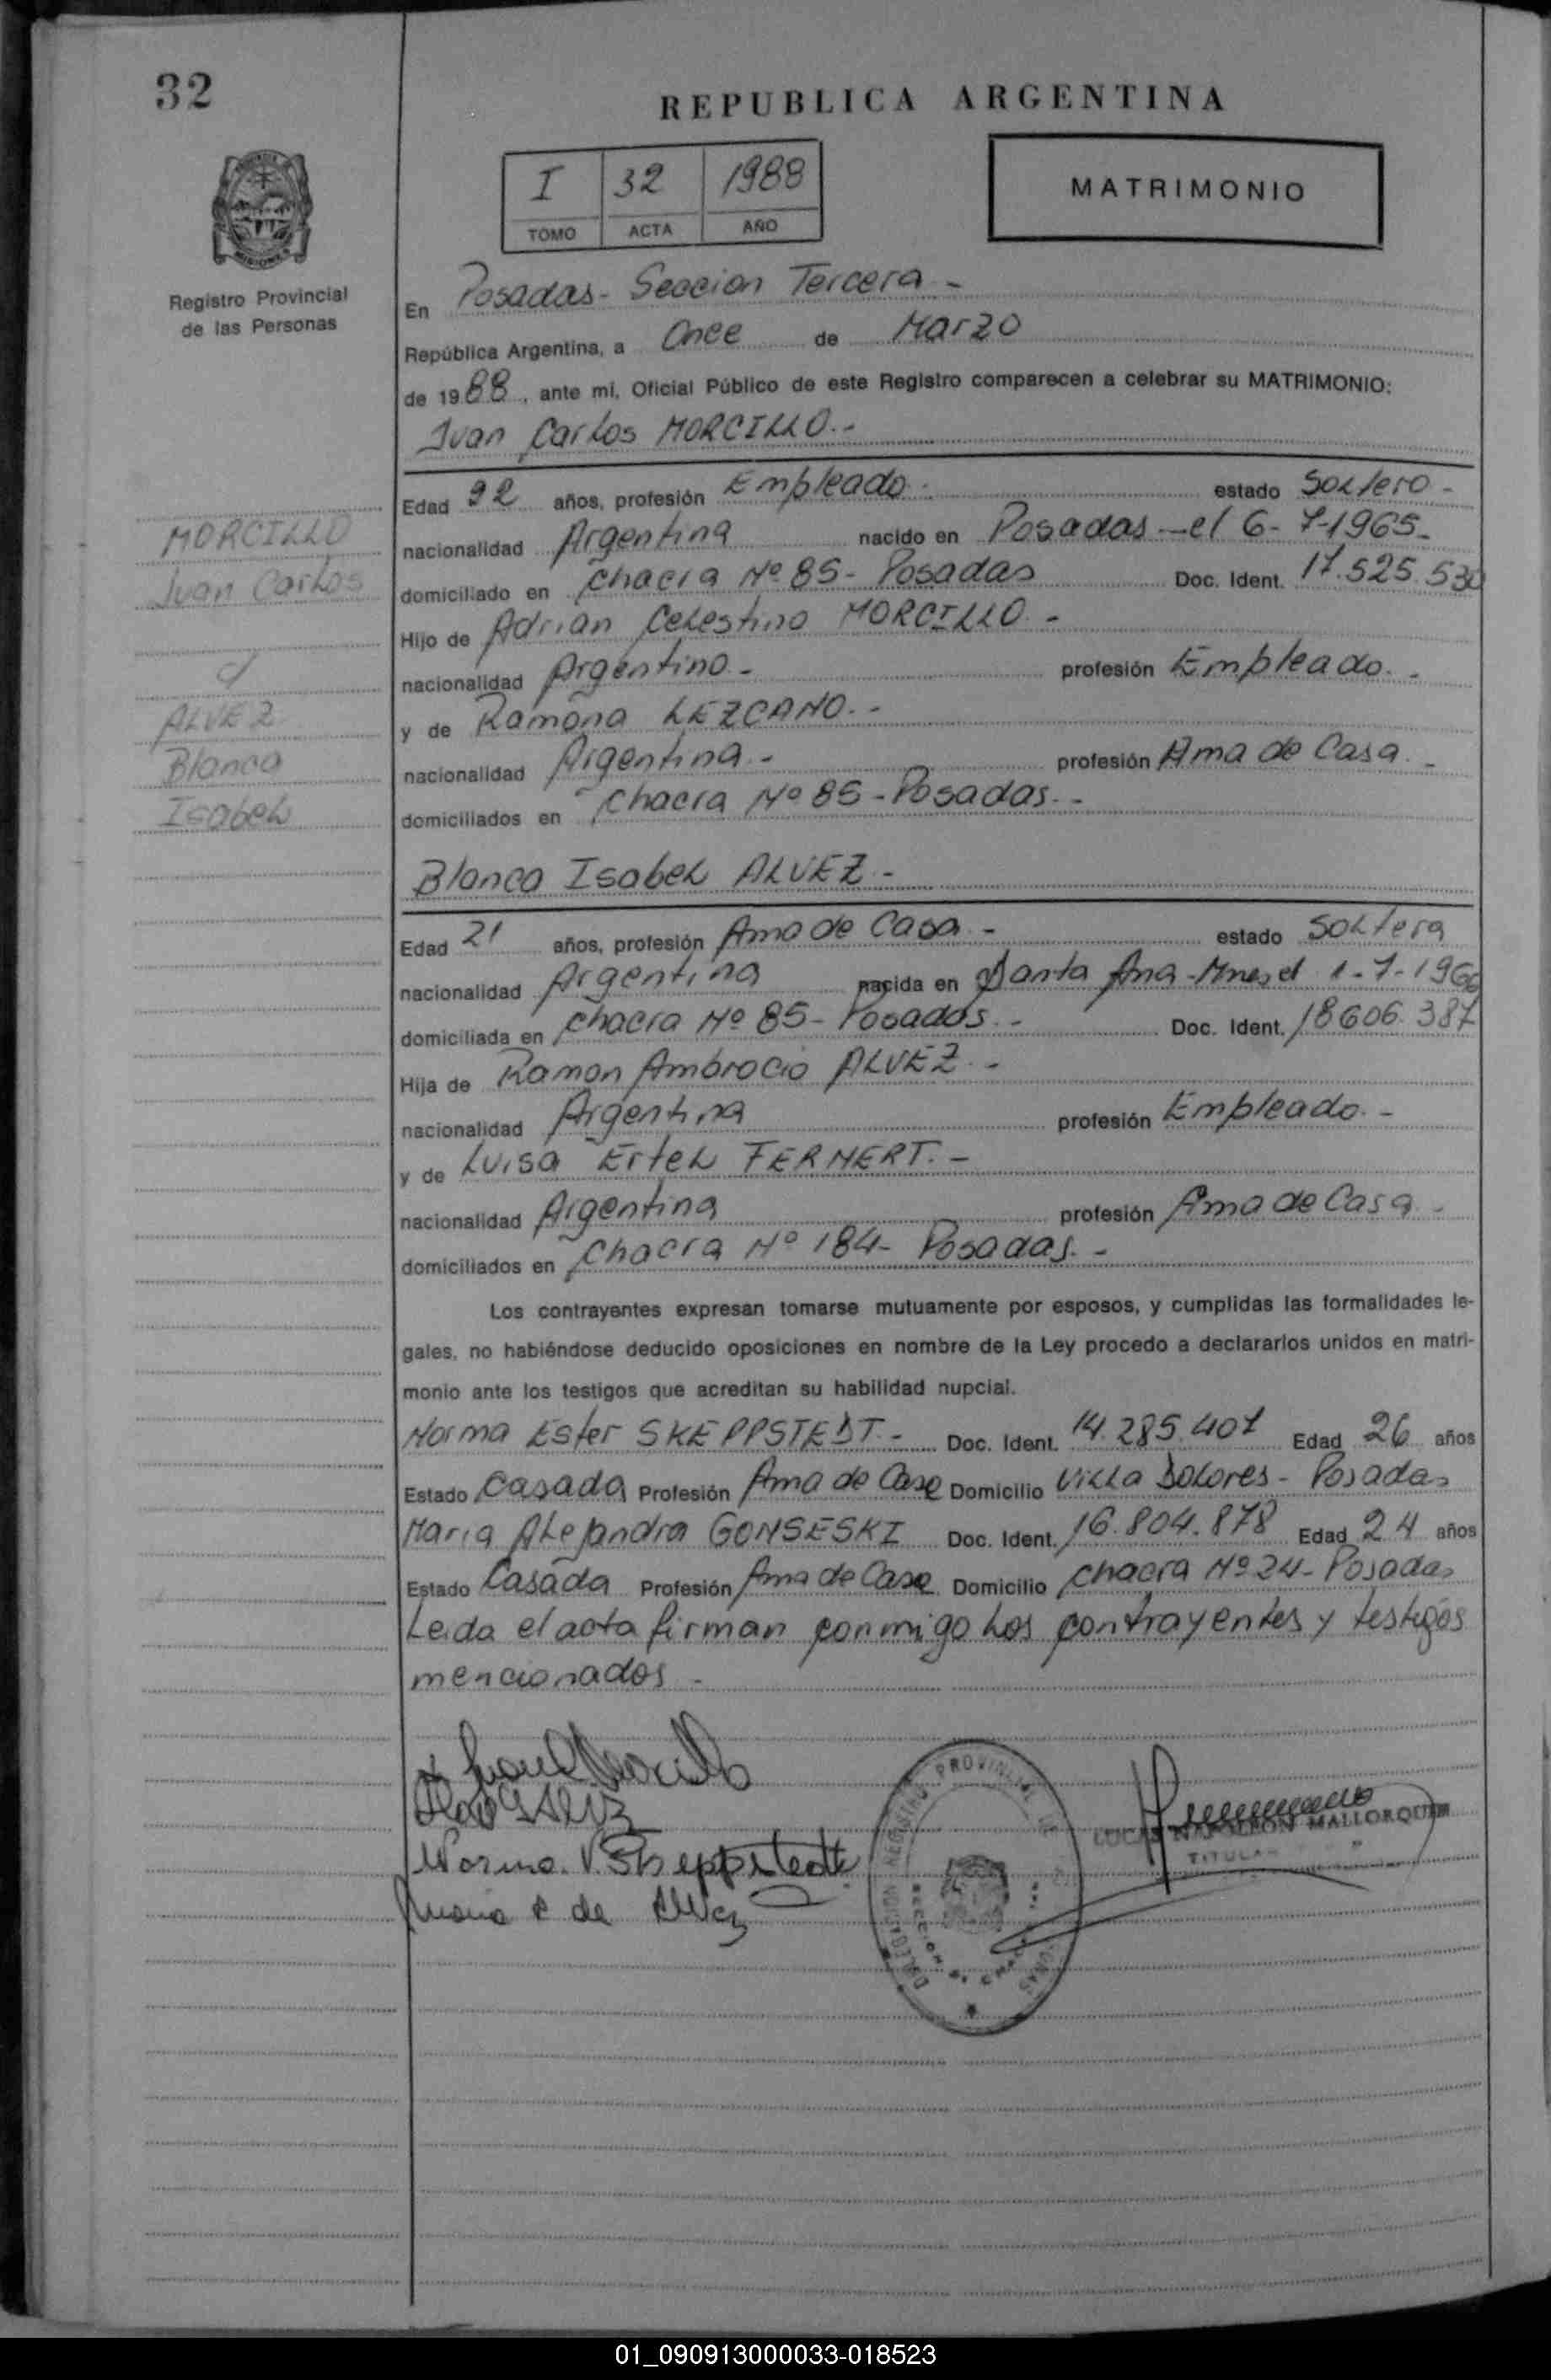 32
REPUBLICA ARGENTINA
I 32 1988
TOMO ACTA AÑO
MATRIMONIO
Registro Provincial
de las Personas
En Posadas - Seccion Tercera -
República Argentina, a Once de Marzo
de 1988, ante mi, Oficial Público de este Registro comparecen a celebrar su MATRIMONIO:
Juan Carlos MORCILLO.-
Edad 22 años, profesión Empleado. estado Soltero -
nacionalidad Argentina nacido en Posadas - el 6-7-1965-
domiciliado en Chacra Nº 85- Posadas Doc. Ident. 17.525.530
Hijo de Adrian Celestino MORCILLO. -
nacionalidad Argentino - profesión Empleado. -
y de Ramona LEZCANO. -
nacionalidad Argentina - profesión Ama de Casa. -
domiciliados en Chacra Nº 85 - Posadas. -
MORCILLO
Juan Carlos
c/
ALVEZ
Blanca
Isabel
Blanca Isabel ALVEZ -
Edad 21 años, profesión Ama de Casa - estado Soltera
nacionalidad Argentina nacida en Santa Ana - Mnes el 1-7-1966
domiciliada en Chacra Nº 85 - Posadas - Doc. Ident. 18606.387
Hija de Ramon Ambrocio ALVEZ. -
nacionalidad Argentina profesión Empleado. -
y de Luisa Ertel FERNERT. -
nacionalidad Argentina profesión Ama de Casa -
domiciliados en Chacra Nº 184- Posadas. -
Los contrayentes expresan tomarse mutuamente por esposos, y cumplidas las formalidades le-
gales, no habiéndose deducido oposiciones en nombre de la Ley procedo a declararlos unidos en matri-
monio ante los testigos que acreditan su habilidad nupcial.
Norma Ester SKEPPSTEDT.- Doc. Ident. 14.285.407 Edad 26 años
Estado Casada Profesión Ama de Casa Domicilio Villa Dolores - Posadas
Maria Alejandra GONSESKI Doc. Ident. 16.804.878 Edad 24 años
Estado Casada Profesión Ama de Casa Domicilio Chacra Nº 24- Posadas
Leida el acta firman conmigo los contrayentes y testigos
mencionados -
Norma V. Skeppstedt
Maria de Alvez
DELEGACION REGISTRO PROVINCIAL DE LAS PERSONAS
LUCAS NAPOLEON MALLORQUIN
TITULAR
01_090913000033-018523